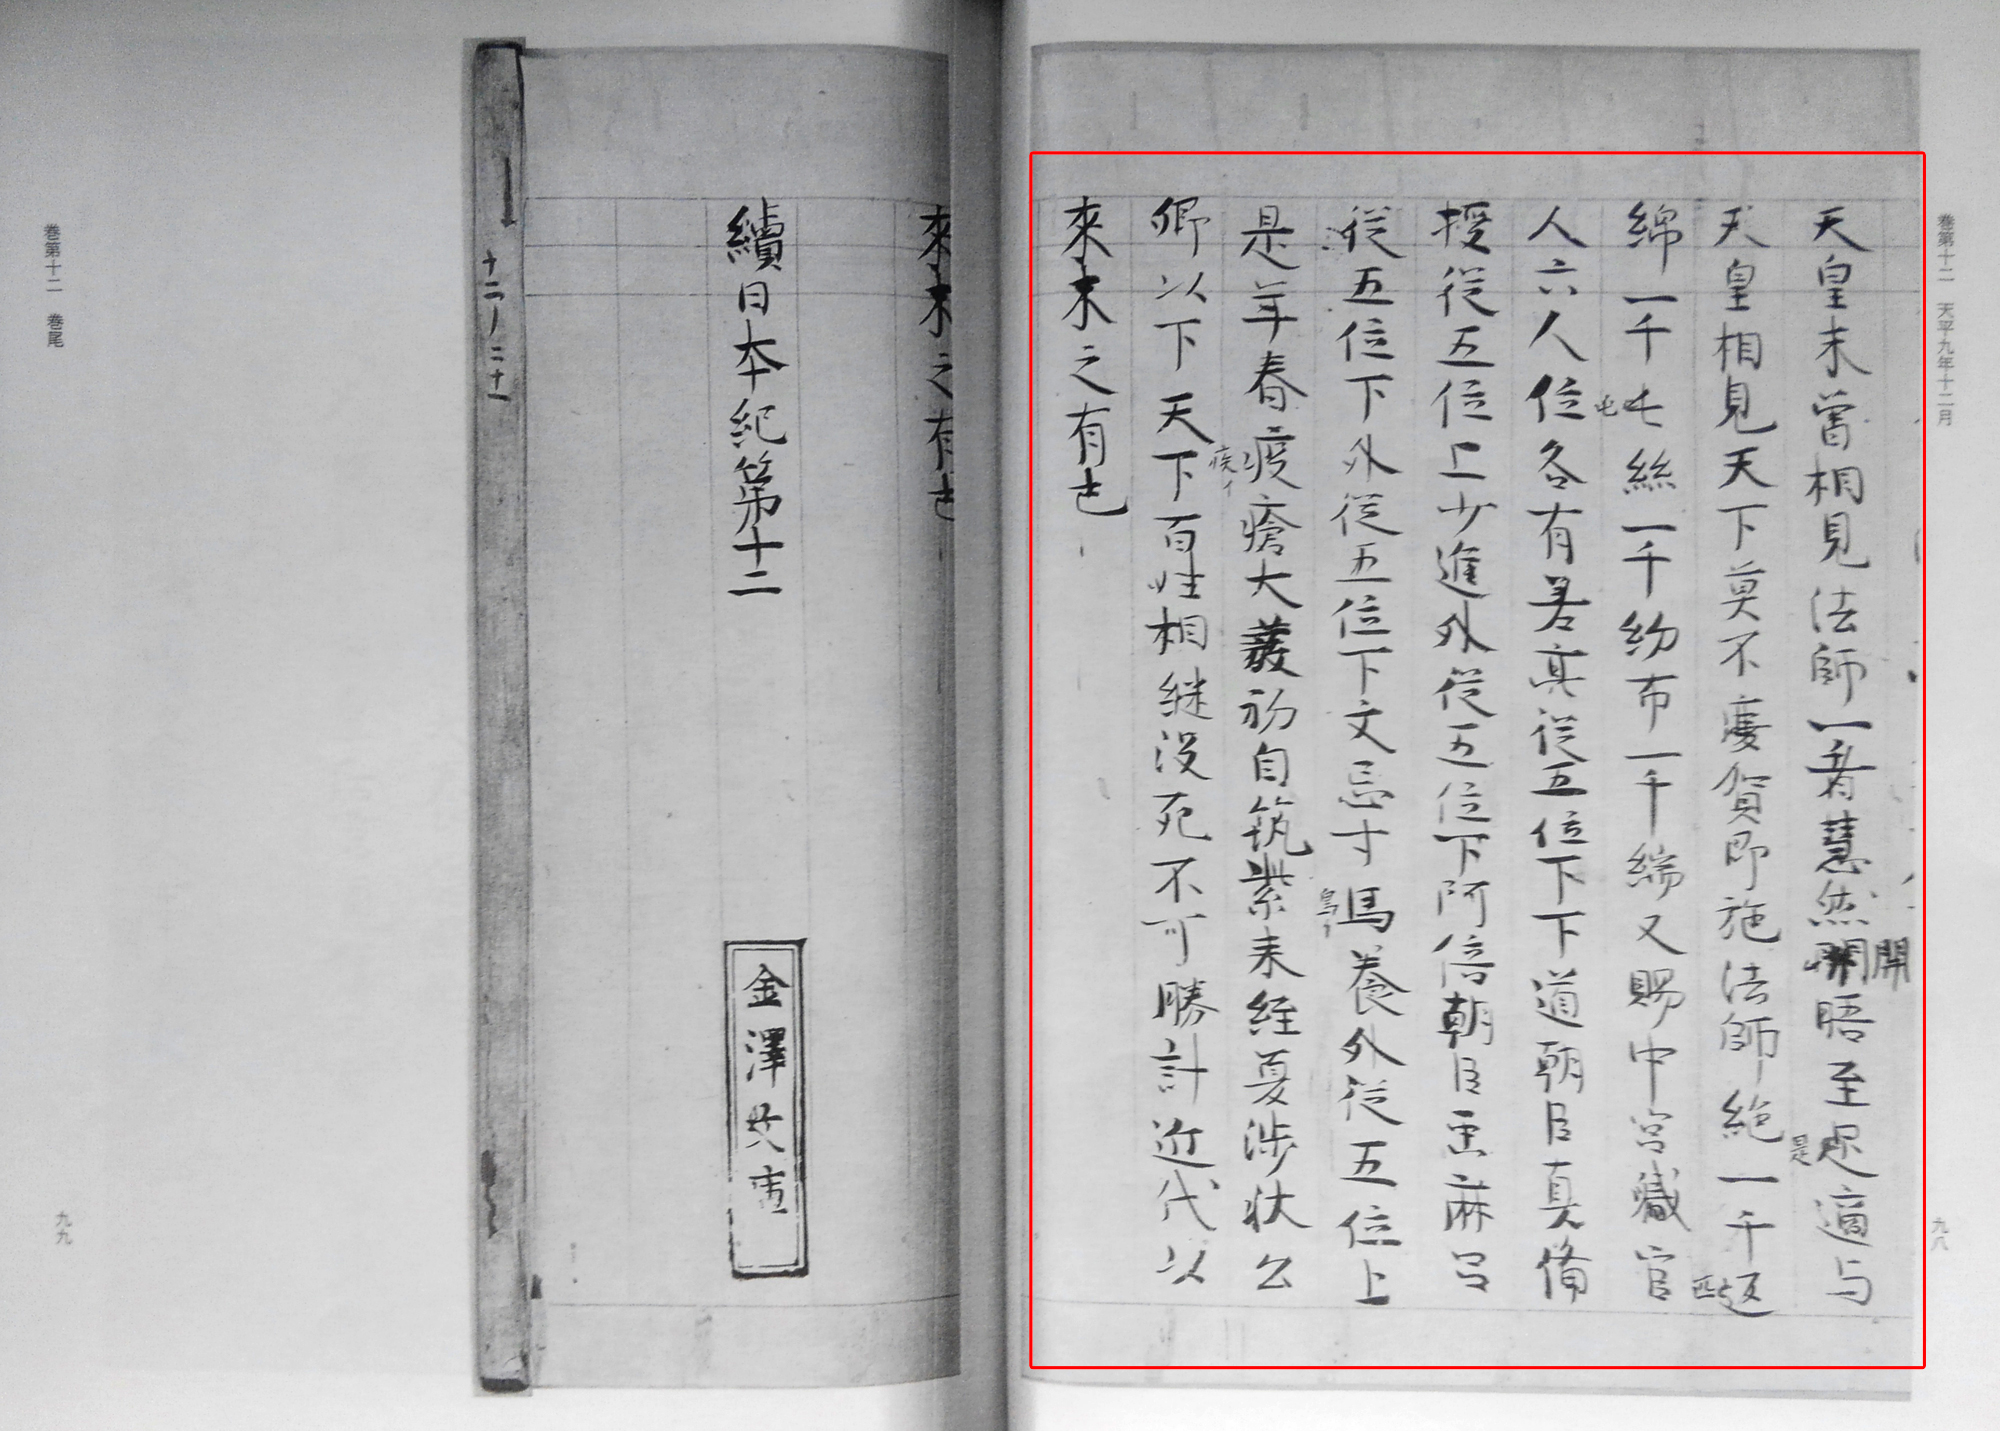 巻第十二　天平九年十二月
九八
天皇未甞相見法師一看慧然開晤至是適与
開
是
天皇相見天下莫不慶賀即施法師絁一千返
匹
綿一千屯絲一千絇布一千端又賜中宮職官
屯
人六人位各有差亮従五位下下道朝臣真備
授従五位上少進外従五位下阿倍朝臣虫麻呂
従五位下外従五位下文忌寸馬養外従五位上
鳥イ
是年春疫瘡大發初自筑紫来経夏渉秋公
疾イ
卿以下天下百姓相継没死不可勝計近代以
來未之有也
來未之有也
續日本紀第十二
金澤文庫
十二ノ二十一
巻第十二　巻尾
九九